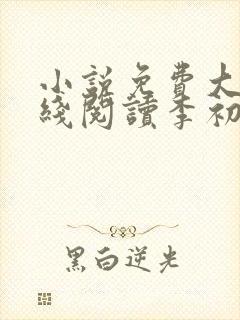 小說免費大
綫閱讀李初
黑白逆光